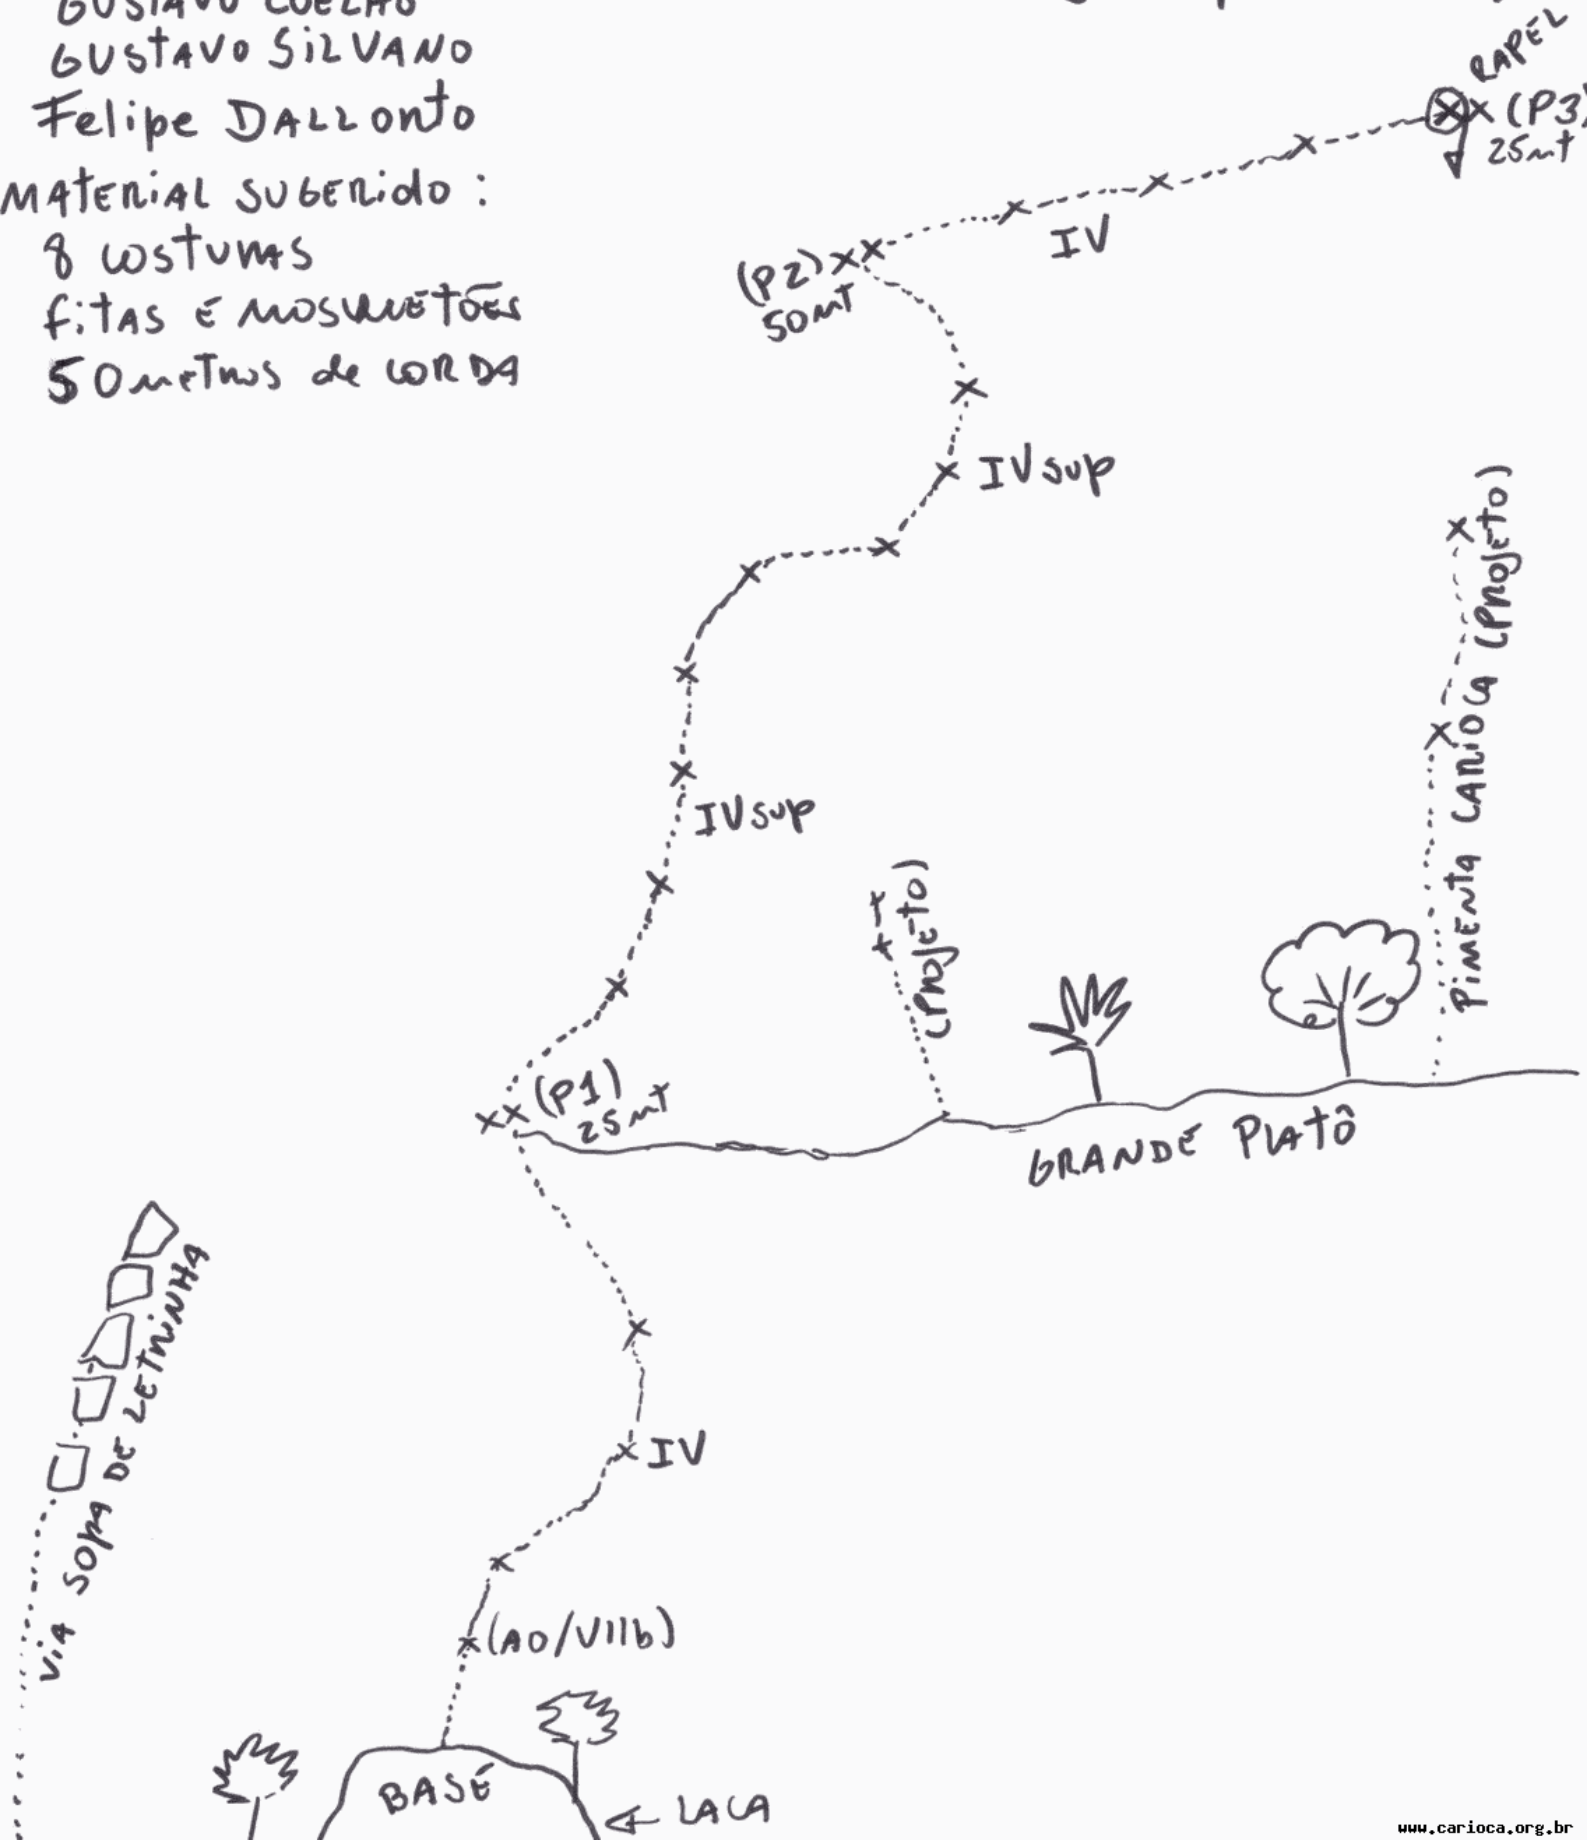 GUSTAVO COELHO
GUSTAVO SILVANO
Felipe DALLONTO
MATERIAL SUGERIDO :
8 COSTURAS
FITAS E MOSQUETÕES
50 METROS de CORDA
RAPEL
(P3)
25mt
IV
(P2)
50mt
IVsup
PIMENTA CARIOCA (PROJETO)
IVsup
(PROJETO)
(P1)
25mt
GRANDE PLATÔ
VIA SOPA DE LETRINHA
IV
(A0/VIIb)
BASE
LACA
www.carioca.org.br